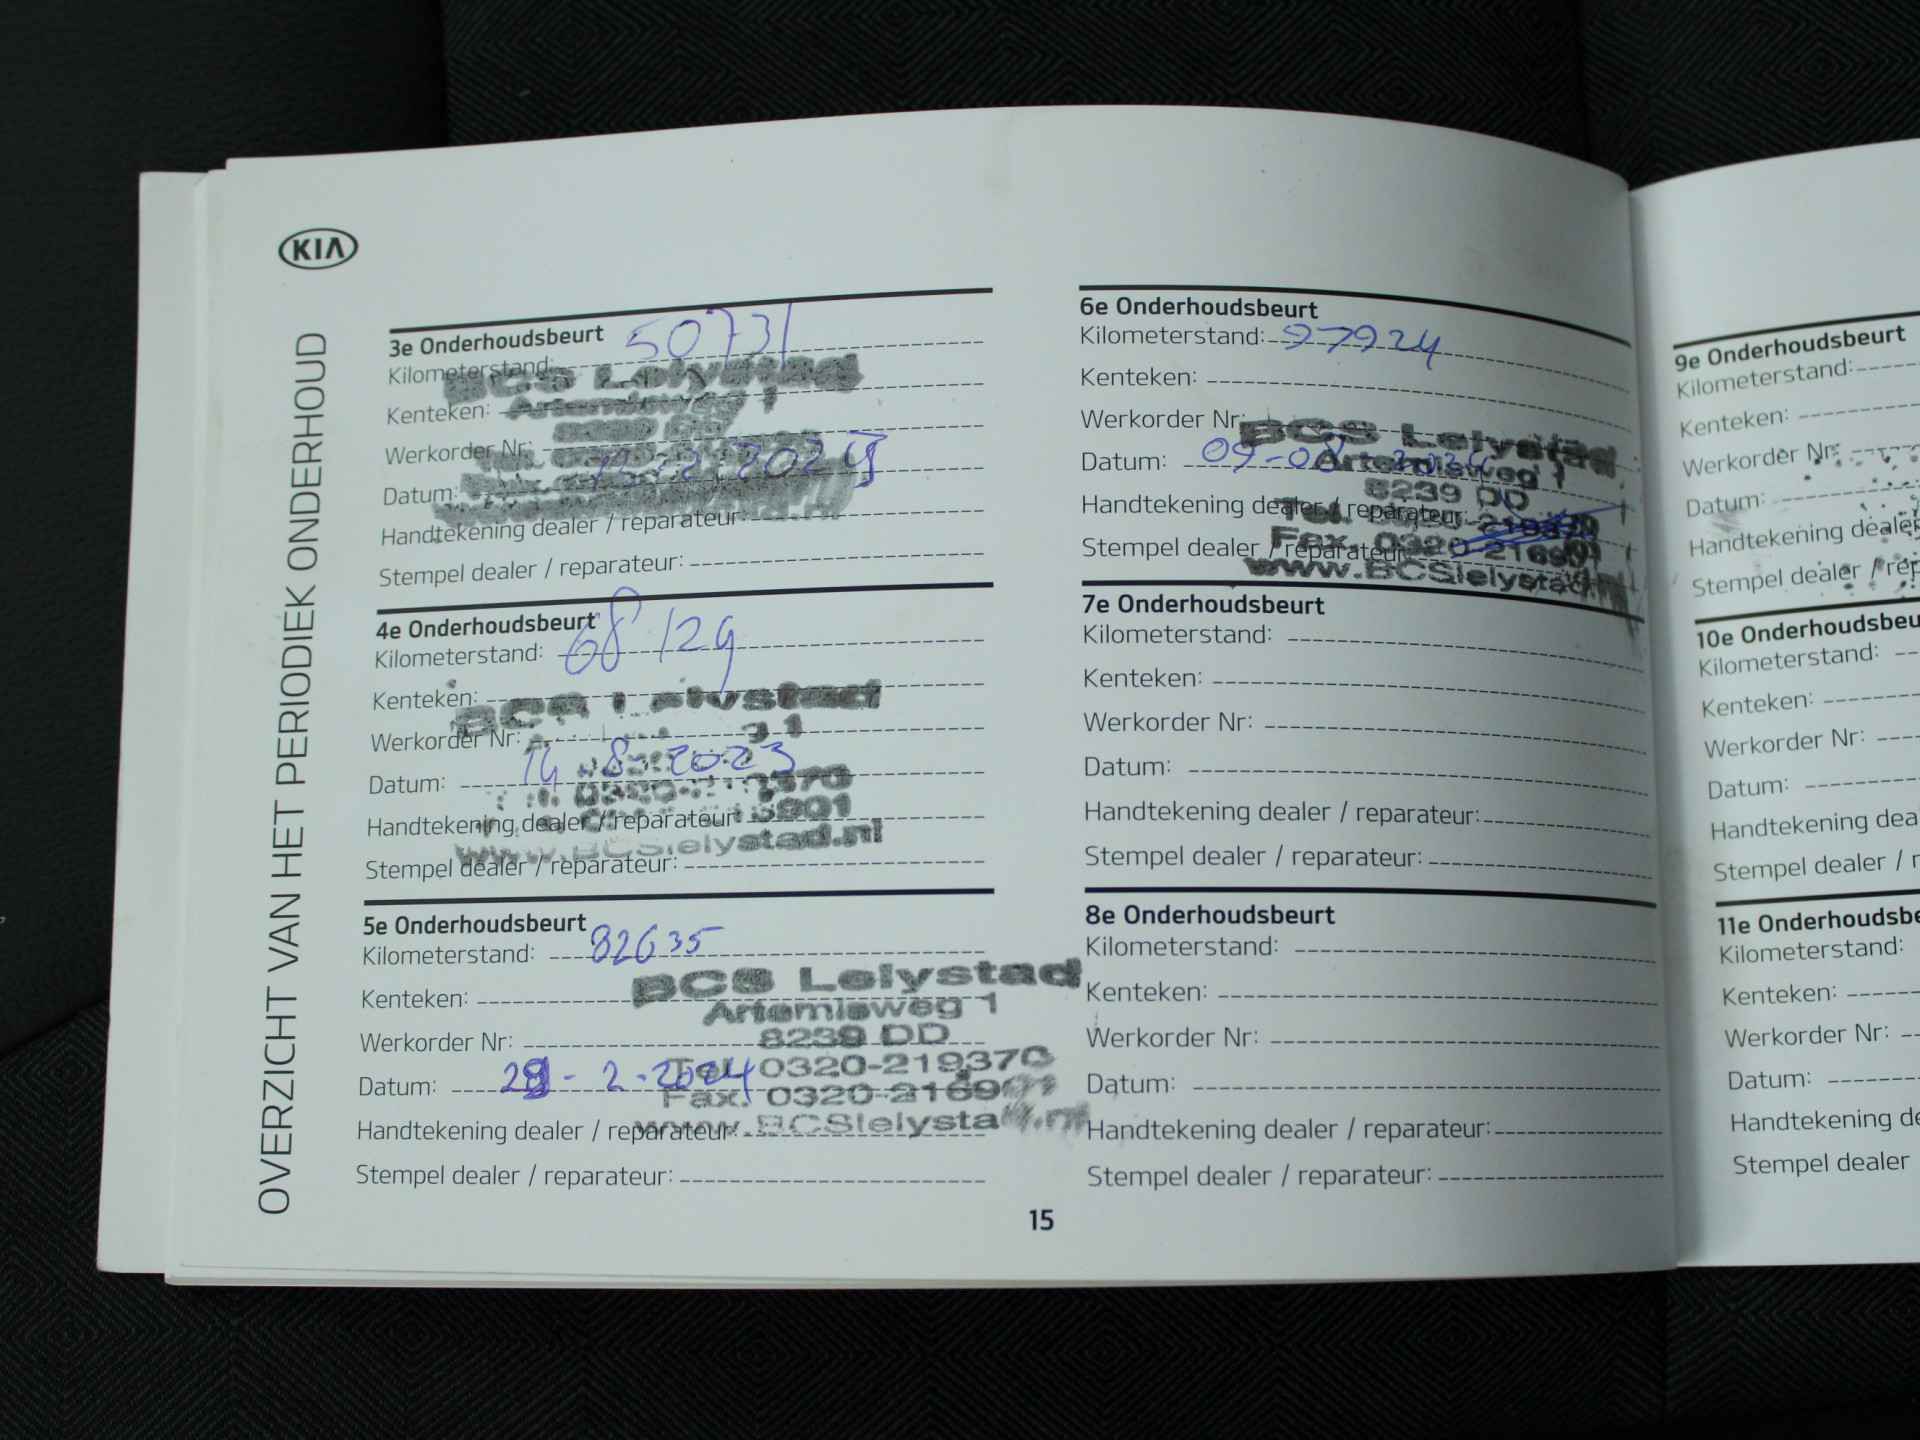 KIA
OVERZICHT VAN HET PERIODIEK ONDERHOUD
3e Onderhoudsbeurt
Kilometerstand: 50731
BCS Lelystad
Kenteken: Artemisweg 1
8239 DD
Werkorder Nr:
Datum:
Handtekening dealer / reparateur:
Stempel dealer / reparateur:
4e Onderhoudsbeurt
Kilometerstand: 68129
Kenteken:
BCS Lelystad
Werkorder Nr:
Datum: 14 8 2023
Handtekening dealer / reparateur:
www.BCSlelystad.nl
Stempel dealer / reparateur:
5e Onderhoudsbeurt
Kilometerstand: 82635
BCS Lelystad
Kenteken:
Artemisweg 1
Werkorder Nr: 8239 DD
Tel. 0320-219370
Datum: 2-2024
Fax. 0320-216901
Handtekening dealer / reparateur:
www.BCSlelystad.nl
Stempel dealer / reparateur:
6e Onderhoudsbeurt
Kilometerstand: 97924
Kenteken:
Werkorder Nr:
BCS Lelystad
Datum: 09-08 2024
Artemisweg 1
8239 DD
Handtekening dealer / reparateur:
Tel. 0320-219370
Fax. 0320-216901
Stempel dealer / reparateur:
www.BCSlelystad.nl
7e Onderhoudsbeurt
Kilometerstand:
Kenteken:
Werkorder Nr:
Datum:
Handtekening dealer / reparateur:
Stempel dealer / reparateur:
8e Onderhoudsbeurt
Kilometerstand:
Kenteken:
Werkorder Nr:
Datum:
Handtekening dealer / reparateur:
Stempel dealer / reparateur:
15
9e Onderhoudsbeurt
Kilometerstand:
Kenteken:
Werkorder Nr:
Datum:
Handtekening dealer
Stempel dealer / rep
10e Onderhoudsbeu
Kilometerstand:
Kenteken:
Werkorder Nr:
Datum:
Handtekening dea
Stempel dealer / r
11e Onderhoudsbe
Kilometerstand:
Kenteken:
Werkorder Nr:
Datum:
Handtekening de
Stempel dealer